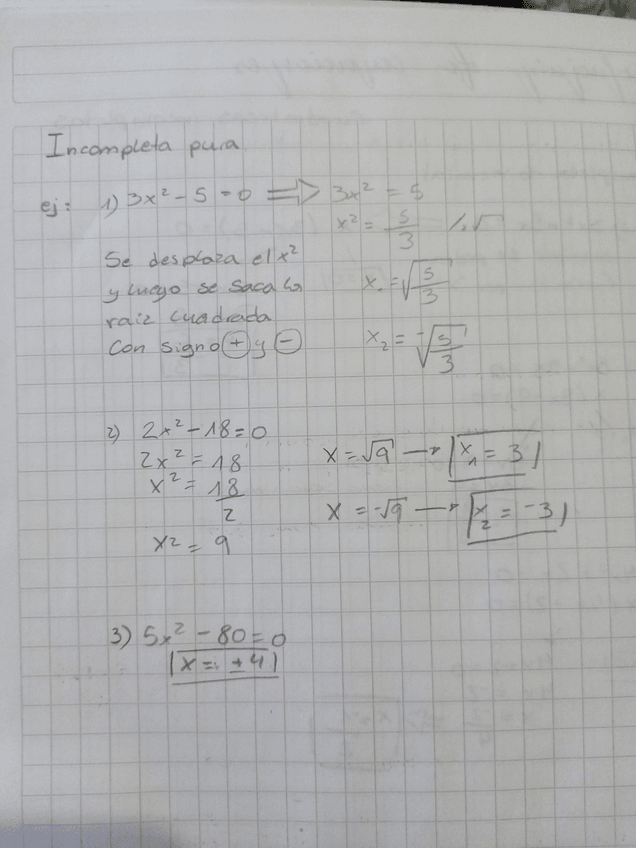 Incompleta pura
ej: 1) 3x² - 5 = 0 ⟹ 3x² = 5
x² = 5/3 /√
Se desplaza el x²
y luego se saca la
raiz cuadrada
Con signo ⊕ y ⊖
x₁ = √5/3
x₂ = -√5/3
2) 2x² - 18 = 0
2x² = 18
x² = 18/2
x² = 9
x = √9 → |x₁ = 3|
x = -√9 → |x₂ = -3|
3) 5x² - 80 = 0
|x = ± 4|